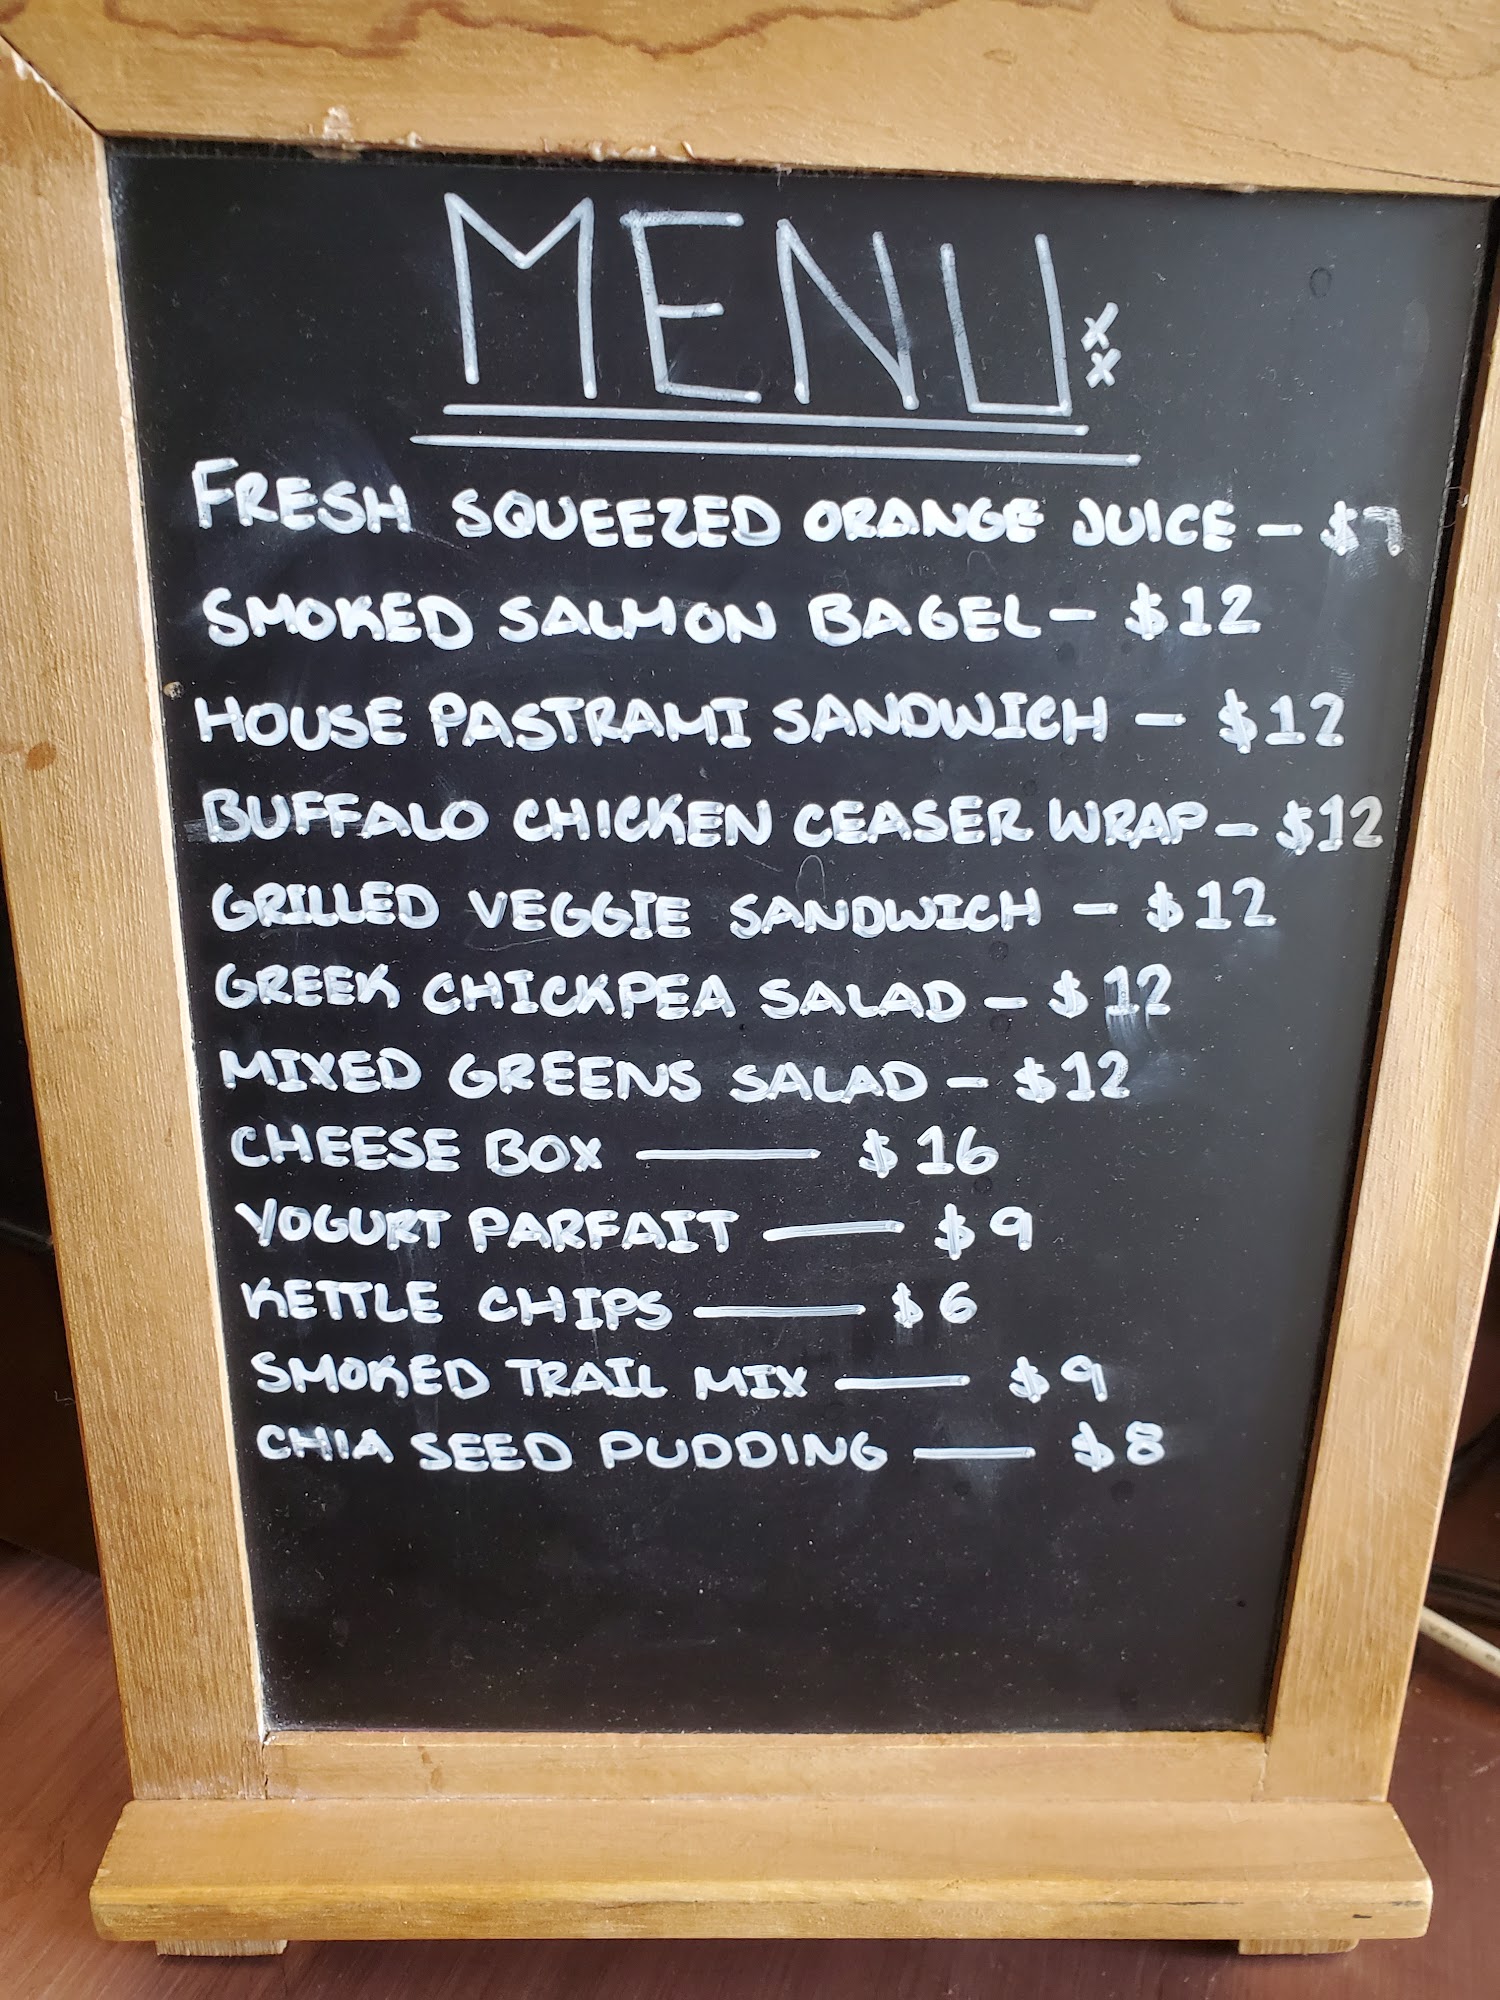 MENU xx
FRESH SQUEEZED ORANGE JUICE — $7
SMOKED SALMON BAGEL — $12
HOUSE PASTRAMI SANDWICH — $12
BUFFALO CHICKEN CEASER WRAP — $12
GRILLED VEGGIE SANDWICH — $12
GREEK CHICKPEA SALAD — $12
MIXED GREENS SALAD — $12
CHEESE BOX — $16
YOGURT PARFAIT — $9
KETTLE CHIPS — $6
SMOKED TRAIL MIX — $9
CHIA SEED PUDDING — $8